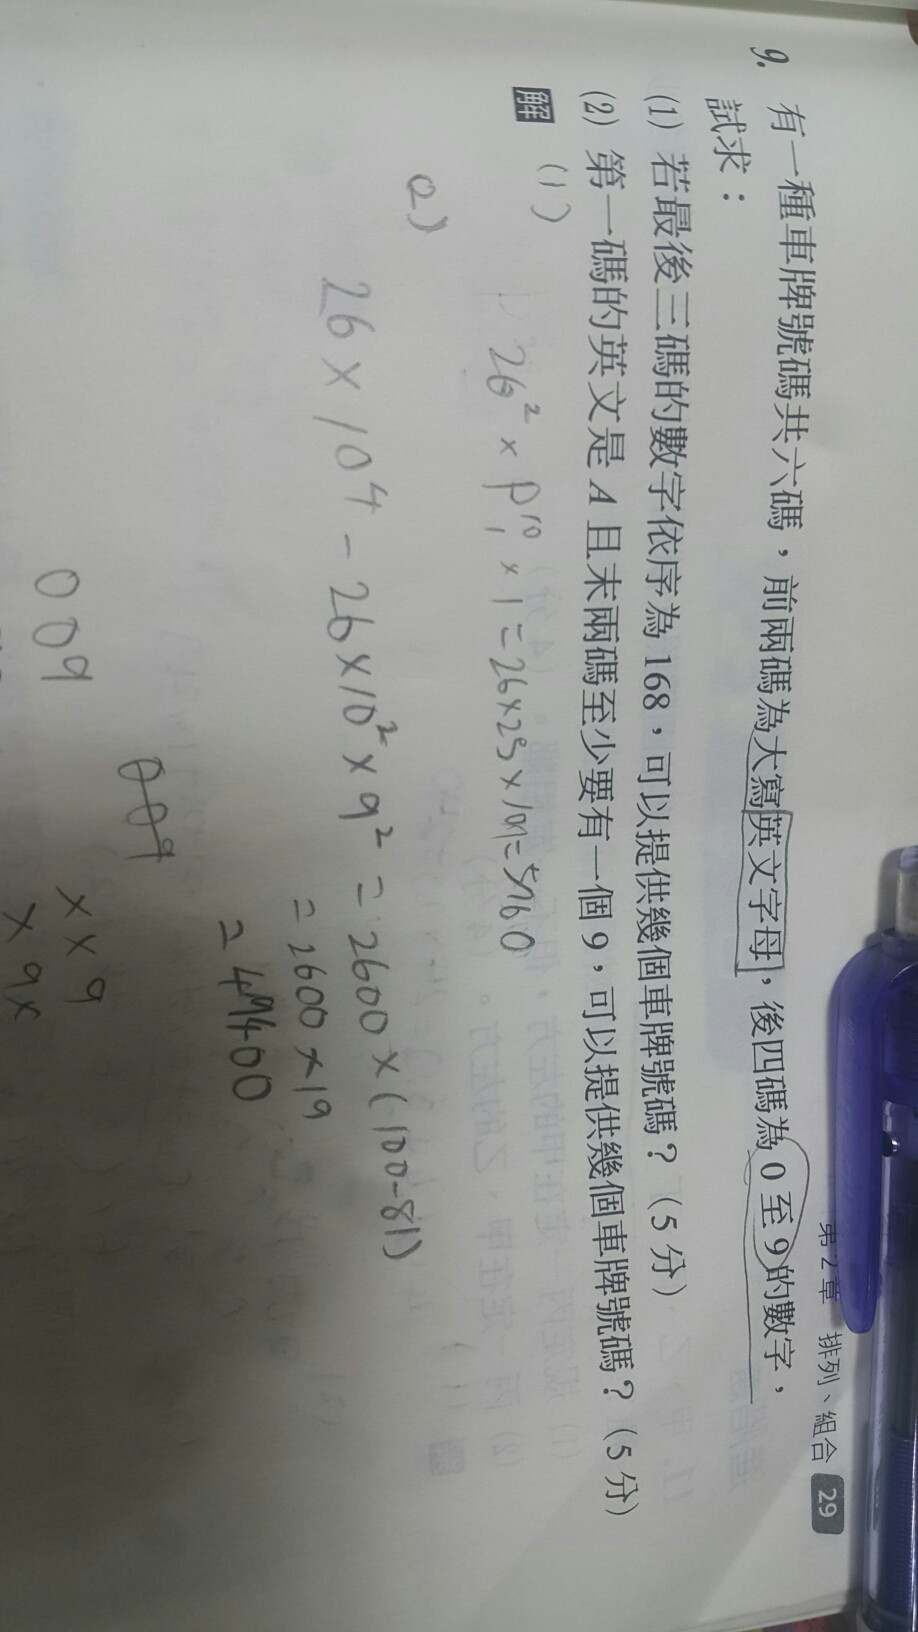 第2章 排列、組合 29
9. 有一種車牌號碼共六碼，前兩碼為大寫英文字母，後四碼為0至9的數字，
試求：
(1) 若最後三碼的數字依序為168，可以提供幾個車牌號碼？（5分）
(2) 第一碼的英文是A且末兩碼至少要有一個9，可以提供幾個車牌號碼？（5分）
解
(1) 26² × P₁¹⁰ × 1 =
2)
26 × 10⁴ - 26 × 10² × 9² = 2600 × (100-81)
= 2600 × 19
= 49400
009
009
× × 9
× 9 ×